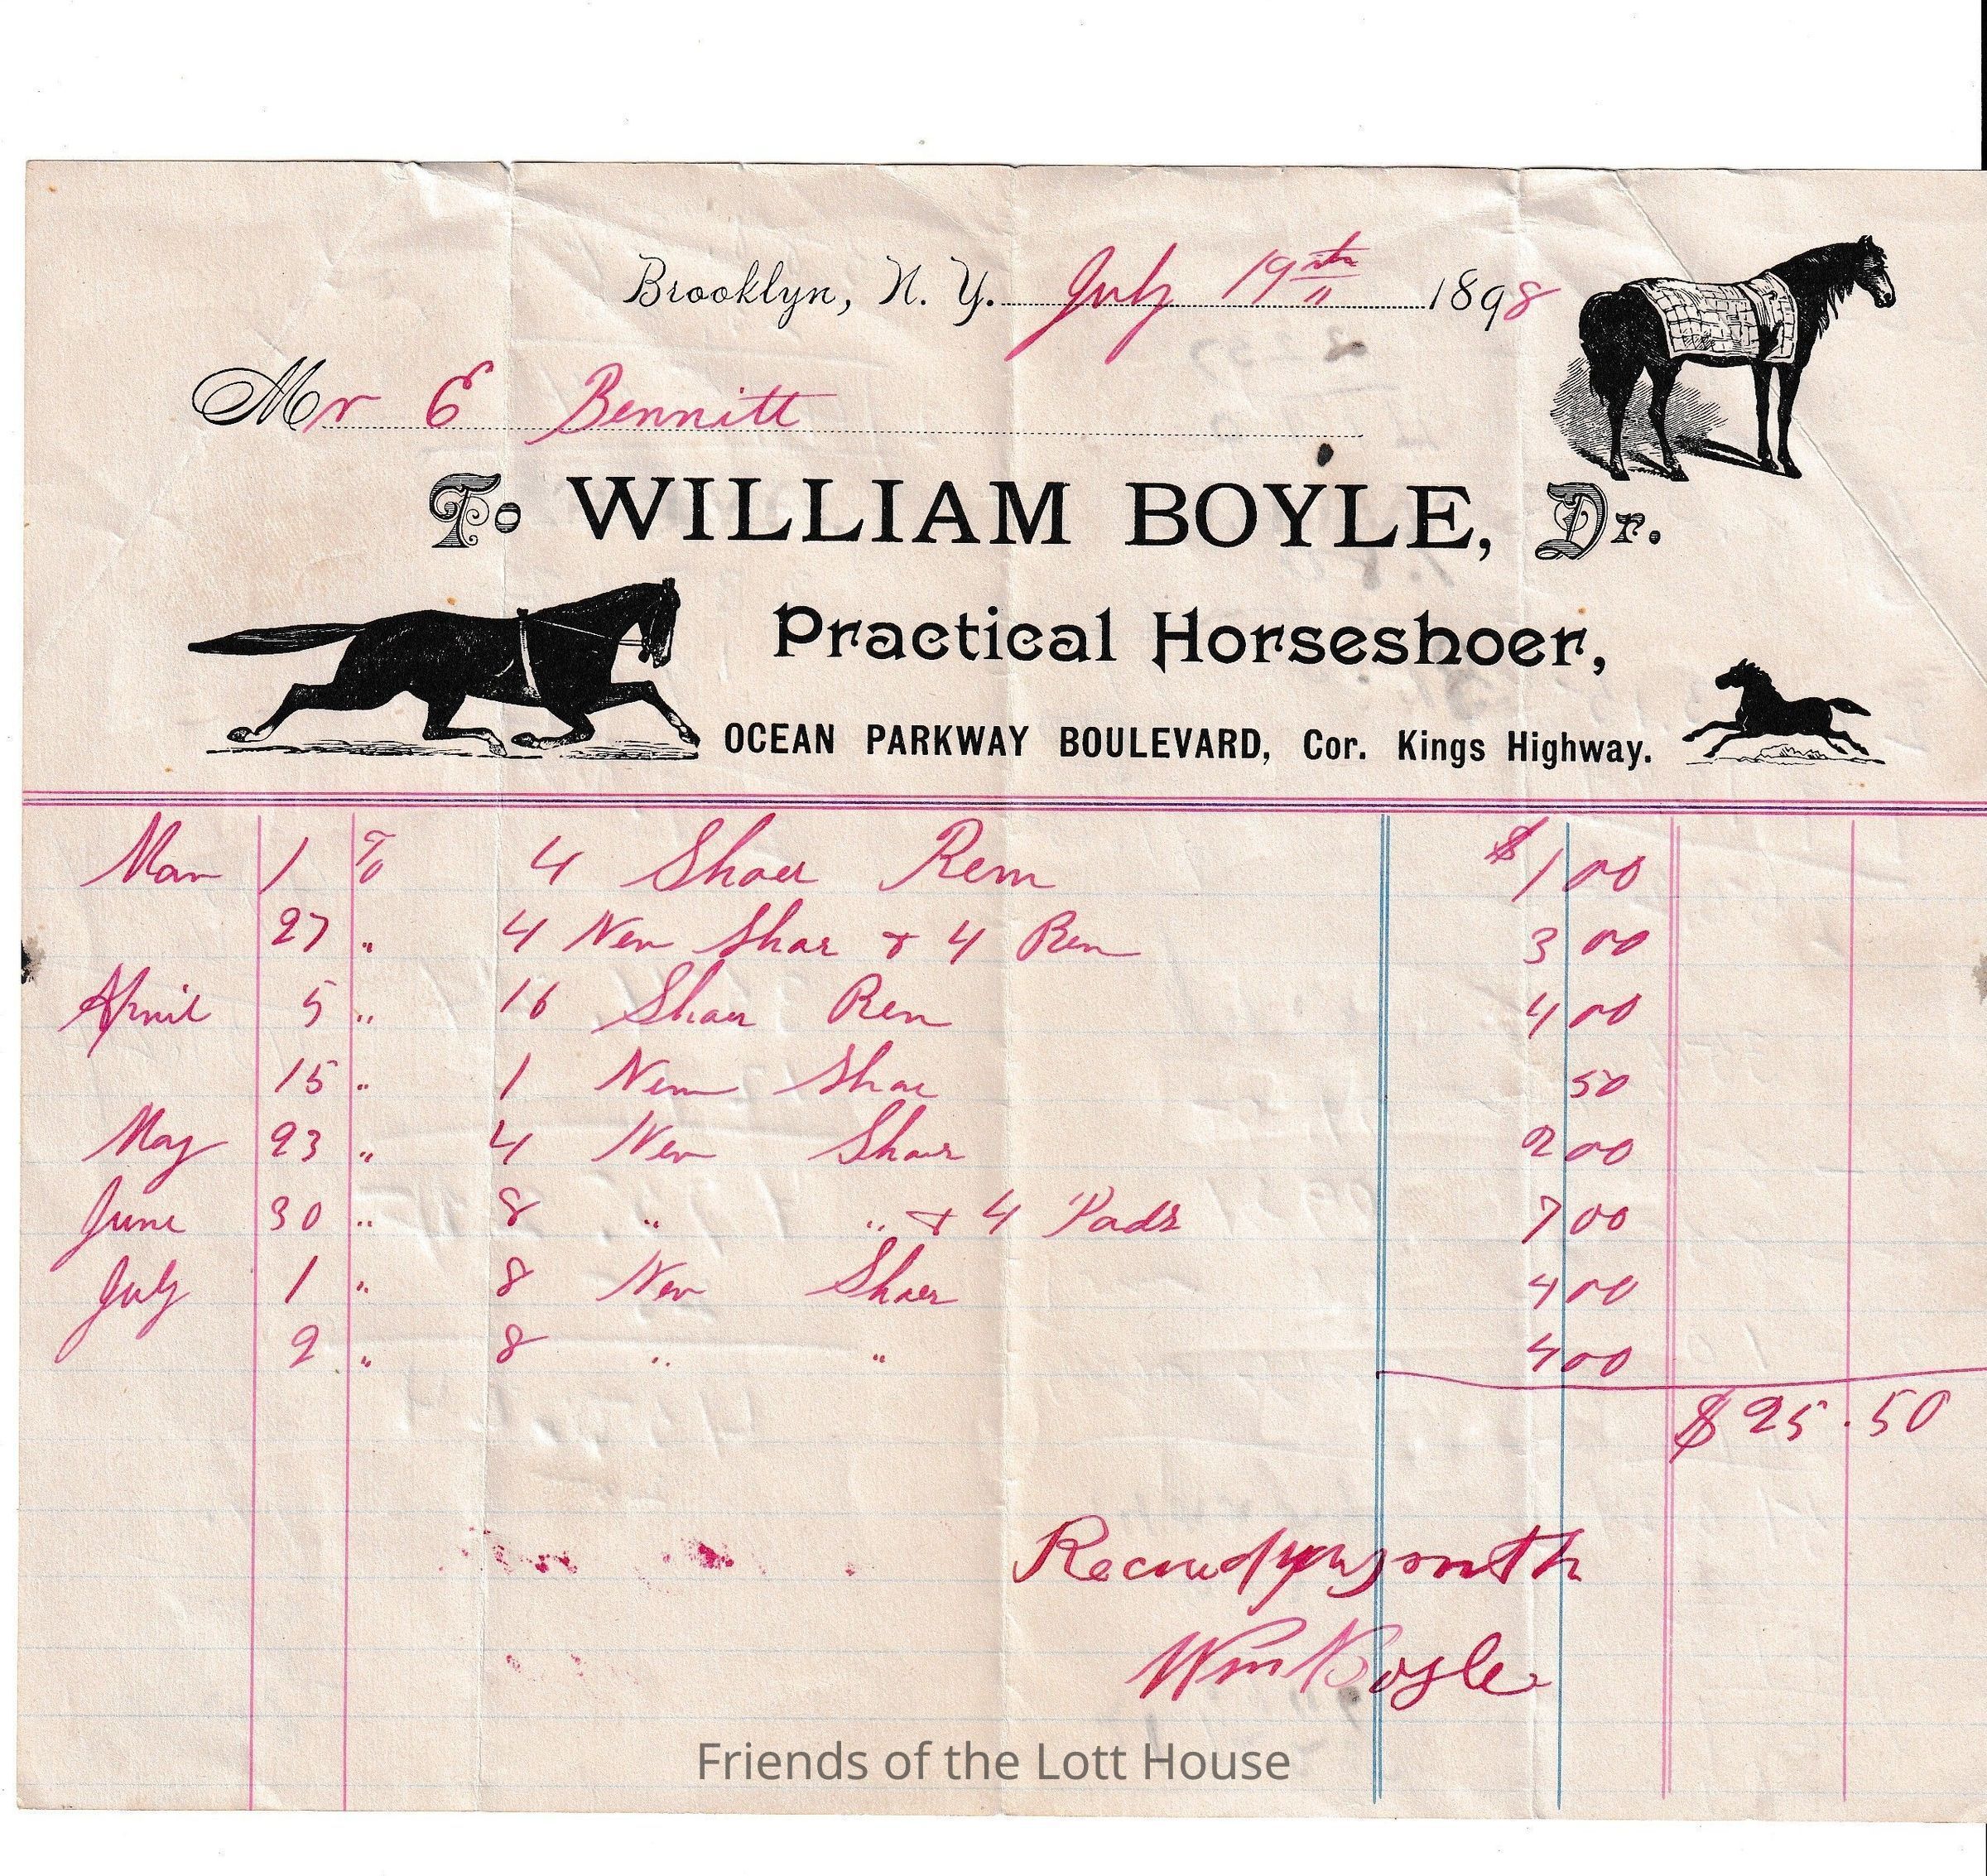 Brooklyn, N. Y. July 19th 1898
Mr E Bennitt
To WILLIAM BOYLE, Dr.
Practical Horseshoer,
OCEAN PARKWAY BOULEVARD, Cor. Kings Highway.
Mar 1 To 4 Shoes Rem $1 00
27 " 4 New Shoes & 4 Rem 3 00
April 5 " 16 Shoes Rem 4 00
15 " 1 New Shoe 50
May 23 " 4 New Shoes 2 00
June 30 " 8 " " & 4 Pads 7 00
July 1 " 8 New Shoes 4 00
2 " 8 " " 4 00
$25.50
Wm Boyle
Friends of the Lott House